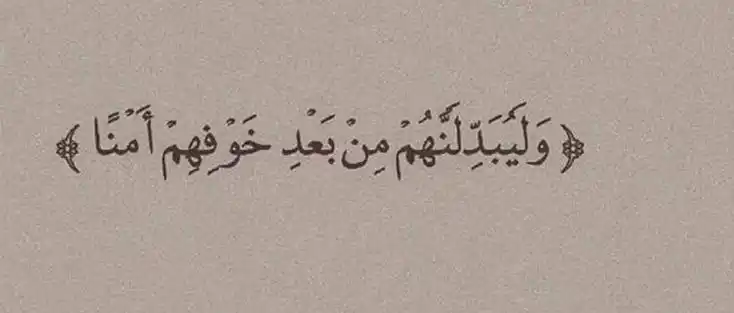 ﴿ وَلَيُبَدِّلَنَّهُمْ مِنْ بَعْدِ خَوْفِهِمْ أَمْنًا ﴾